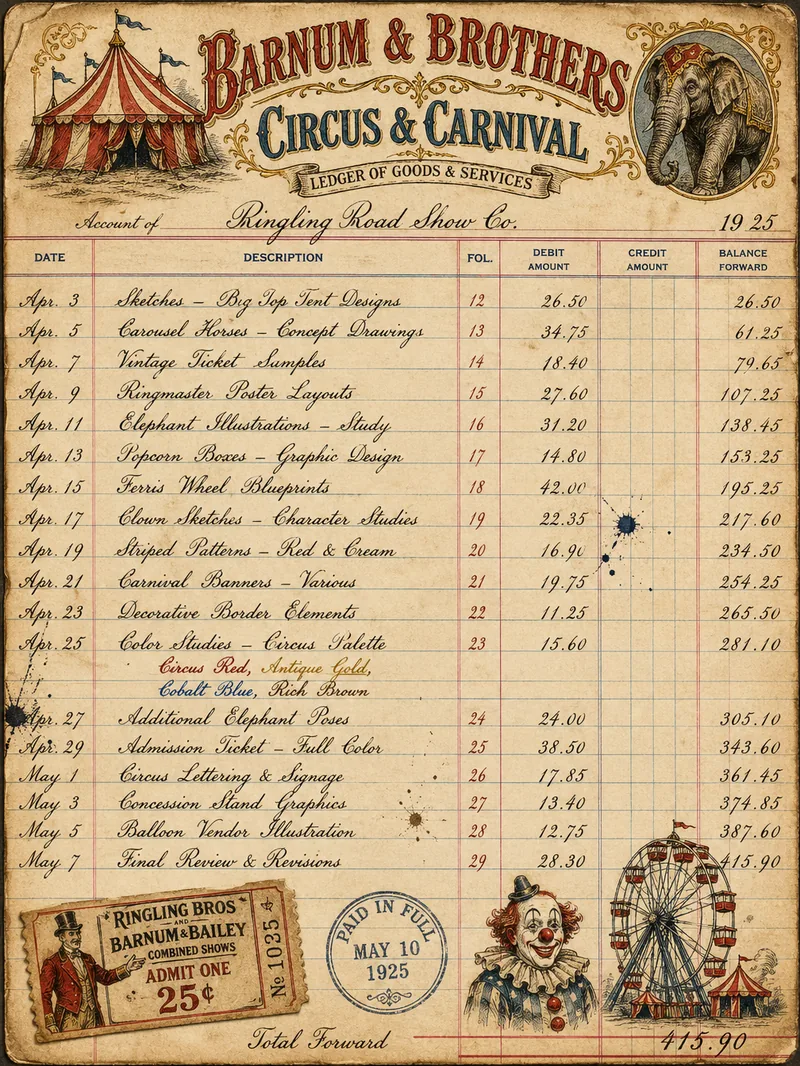 BARNUM & BROTHERS
CIRCUS & CARNIVAL
LEDGER OF GOODS & SERVICES
Account of Ringling Road Show Co. 1925
DATE DESCRIPTION FOL. DEBIT AMOUNT CREDIT AMOUNT BALANCE FORWARD
Apr. 3 Sketches – Big Top Tent Designs 12 26.50 26.50
Apr. 5 Carousel Horses – Concept Drawings 13 34.75 61.25
Apr. 7 Vintage Ticket Samples 14 18.40 79.65
Apr. 9 Ringmaster Poster Layouts 15 27.60 107.25
Apr. 11 Elephant Illustrations – Study 16 31.20 138.45
Apr. 13 Popcorn Boxes – Graphic Design 17 14.80 153.25
Apr. 15 Ferris Wheel Blueprints 18 42.00 195.25
Apr. 17 Clown Sketches – Character Studies 19 22.35 217.60
Apr. 19 Striped Patterns – Red & Cream 20 16.90 234.50
Apr. 21 Carnival Banners – Various 21 19.75 254.25
Apr. 23 Decorative Border Elements 22 11.25 265.50
Apr. 25 Color Studies – Circus Palette 23 15.60 281.10
Circus Red, Antique Gold,
Cobalt Blue, Rich Brown
Apr. 27 Additional Elephant Poses 24 24.00 305.10
Apr. 29 Admission Ticket – Full Color 25 38.50 343.60
May 1 Circus Lettering & Signage 26 17.85 361.45
May 3 Concession Stand Graphics 27 13.40 374.85
May 5 Balloon Vendor Illustration 28 12.75 387.60
May 7 Final Review & Revisions 29 28.30 415.90
RINGLING BROS
AND
BARNUM & BAILEY
COMBINED SHOWS
ADMIT ONE
25¢
No 1035
PAID IN FULL
MAY 10
1925
Total Forward 415.90